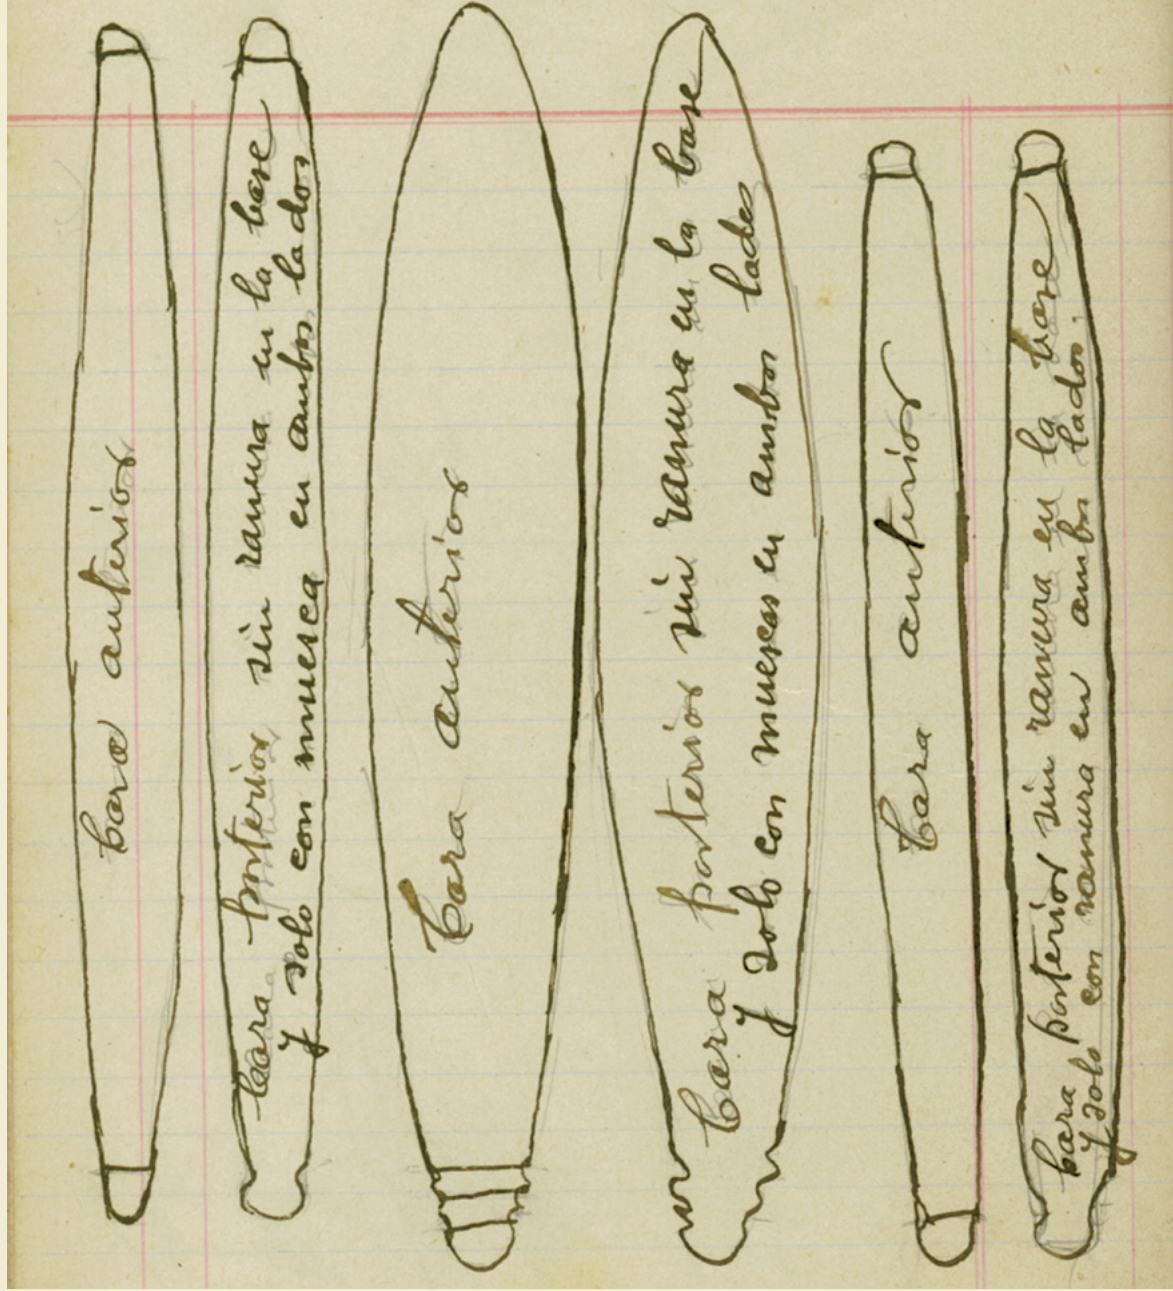 Cara anterior
Cara posterior sin ranura en la base
y solo con muesca en ambos lados
Cara anterior
Cara posterior sin ranura en la base
y solo con muescas en ambos lados
Cara anterior
Cara posterior sin ranura en la base
y solo con ranura en ambos lados.